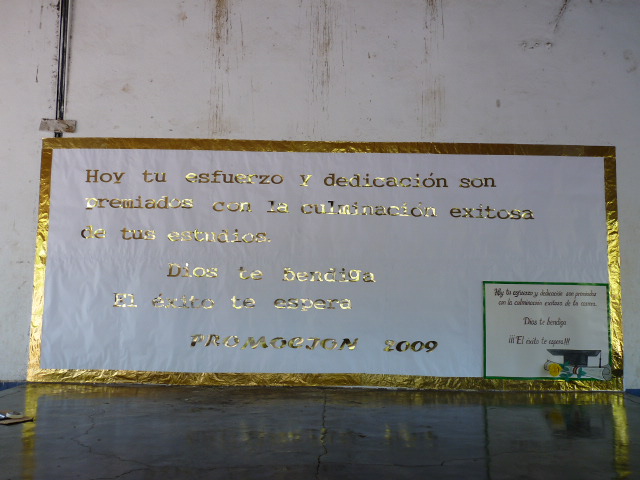 Hoy tu esfuerzo y dedicación son
premiados con la culminación exitosa
de tus estudios.
Dios te bendiga
El éxito te espera
PROMOCION 2009
Hoy tu esfuerzo y dedicación son premiados
con la culminación exitosa de tu carrera.
Dios te bendiga
¡¡¡El exito te espera!!!